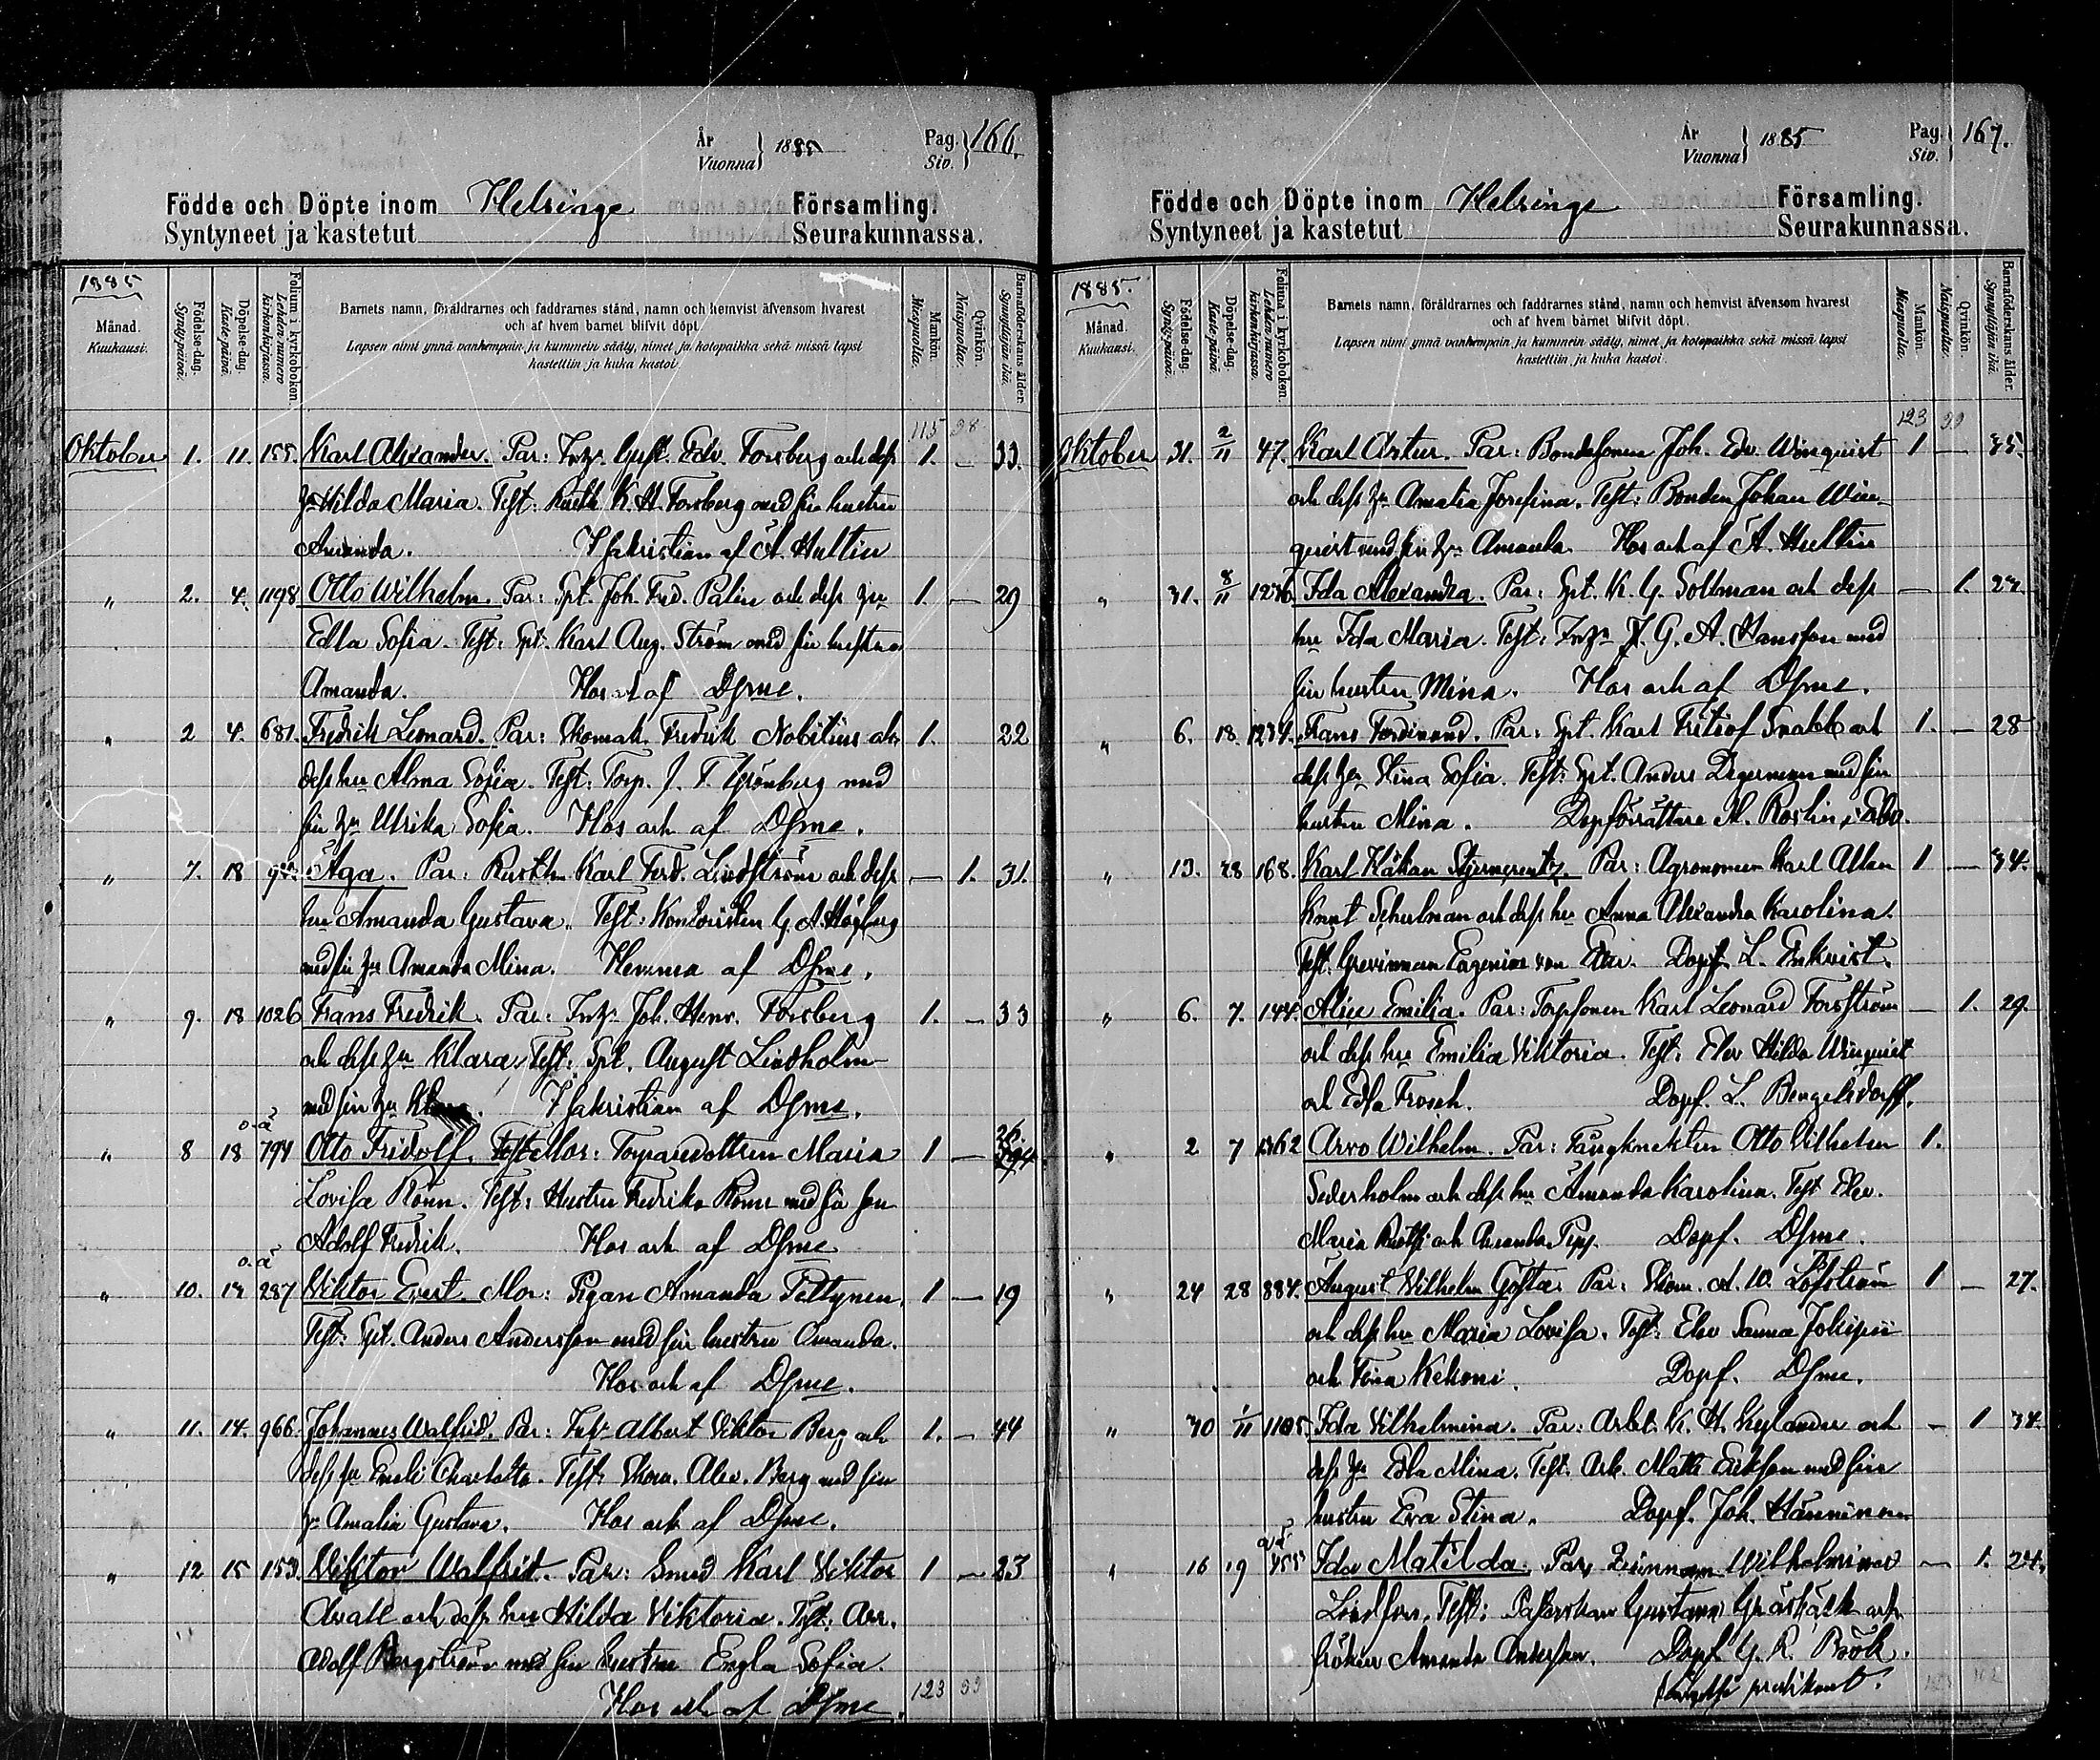 År Vuonna } 1885 Pag. Siv. } 166.
Födde och Döpte inom Helsinge Församling.
Syntyneet ja kastetut Seurakunnassa.
1885
Månad. Kuukausi.
Födelse-dag. Syntypäivä.
Döpelse-dag. Kastepäivä.
Folium i kyrkoboken. Lehden numero kirkonkirjassa.
Barnets namn, föräldrarnes och faddrarnes stånd, namn och hemvist äfvensom hvarest
och af hvem barnet blifvit döpt.
Lapsen nimi ynnä vanhempain ja kummein sääty, nimet ja kotopaikka sekä missä lapsi
kastettiin ja kuka kastoi.
Mankön. Miespuolia.
Qvinkön. Naispuolia.
Barnaföderskans ålder. Synnyttäjän ikä.
115 98
Oktober 1. 11. 155. Karl Alexander. Par: Gust. Edv. Forsberg och dess 1. – 33.
Hilda Maria. Test: K. H. Forsberg med sin hustru
Amanda. I sakristian af A. Hultin
" 2. 4. 1198 Otto Wilhelm. Par: Spt. Joh. Fred. Palin och dess hu 1. – 29
Edla Sofia. Test: Spt. Karl Aug. Ström med sin hustru
Amanda. Hos och af Dsme.
" 2 4. 681. Fredrik Leonard. Par: Skomak. Fredrik Nobelius och 1. 22
dess hu Alma Sofia. Test: Torp. J. F. Grönberg med
sin hu Ulrika Sofia. Hos och af Dsme.
" 7. 18 Aga. Par: Rusth. Karl Ferd. Lindström och dess – 1. 31.
hu Amanda Gustava. Test: Kontoristen G. A. Högberg
med sin hu Amanda Mina. Hemma af Dsme.
" 9. 18 1026 Frans Fredrik. Par: Joh. Henr. Forsberg 1. – 33
och dess hu Klara. Test: Spt. August Lindholm
med sin hu I sakristian af Dsme.
o. ä
" 8 18 794 Otto Fridolf. Mor: Torparedottren Maria 1 –
Lovisa Rönn. Test: Hustru Fredrika Rönn med sin son
Adolf Fredrik. Hos och af Dsme
o. ä
" 10. 14 287 Viktor Evert. Mor: Pigan Amanda Pettynen. 1 – 19
Test: Spt. Anders Andersson med sin hustru Amanda.
Hos och af Dsme.
" 11. 14. 966. Johannes Walfrid. Par: Albert Viktor Berg och 1. – 44
dess hu Emeli Charlotta. Test: Skom. Alex. Berg med sin
hu Amalia Gustava. Hos och af Dsme.
" 12 15 153. Viktor Walfrid. Par: Smed Karl Viktor 1 – 23
och dess hu Hilda Viktoria. Test: Arr.
Adolf Bergström med sin hustru Engla Sofia.
Hos och af Dsme.
123 99
År Vuonna } 1885 Pag. Siv. } 167.
Födde och Döpte inom Helsinge Församling.
Syntyneet ja kastetut Seurakunnassa.
1885.
Månad. Kuukausi.
Födelse-dag. Syntypäivä.
Döpelse-dag. Kastepäivä.
Folium i kyrkoboken. Lehden numero kirkonkirjassa.
Barnets namn, föräldrarnes och faddrarnes stånd, namn och hemvist äfvensom hvarest
och af hvem barnet blifvit döpt.
Lapsen nimi ynnä vanhempain ja kummein sääty, nimet ja kotopaikka sekä missä lapsi
kastettiin ja kuka kastoi.
Mankön. Miespuolia.
Qvinkön. Naispuolia.
Barnaföderskans ålder. Synnyttäjän ikä.
123 99
Oktober 31. 2/11 47. Karl Artur. Par: Bondesonen Joh. Edv. Winquist 1 – 35.
och dess hu Amalia Josefina. Test: Bonden Johan Win-
quist med sin hu Amanda. Hos och af A. Hultin
" 31. 8/11 1236. Ida Alexandra. Par: Spt. K. G. Soltman och dess – 1. 27.
hu Ida Maria. Test: G. A. Hansson med
sin hustru Mina. Hos och af Dsme.
" 6. 18. 1234. Frans Ferdinand. Par: Spt. Karl Fritiof Snabb och 1. – 28
dess hu Stina Sofia. Test: Spt. Anders Degerman med sin
hustru Mina. Dopförrättare H. Roslin, i Åbo.
" 13. 28 168. Karl Håkan Stjerncreutz. Par: Agronomen Karl Allan 1 – 34.
Knut Schulman och dess hu Anna Alexandra Karolina.
Test: Grevinnan Eugenie von Dopf. L. Enkvist.
" 6. 7. 144. Alice Emilia. Par: Torpsonen Karl Leonard Forsström – 1. 29.
och dess hu Emilia Viktoria. Test: Elev Hilda Winquist
och Edla Frosch. Dopf. L. Bengelsdorff.
" 2 7 1362 Arvo Wilhelm. Par: Fångknekten Otto Vilhelm 1.
Sederholm och dess hu Amanda Karolina. Test Elev.
Maria och Amanda Dopf. Dsme.
" 24 28 884. August Vilhelm Gösta. Par: Skom. A. W. Löfström 1 – 27.
och dess hu Maria Lovisa. Test: Elev Sanna Jokipii
och Fina Kekoni. Dopf. Dsme.
" 30 1/11 1105. Ida Vilhelmina. Par: Arbet. K. H. Nylander och – 1 34.
dess hu Edla Mina. Test. Arb. Matts Erikson med sin
hustru Eva Stina. Dopf. Joh. Hänninen
" 16 19 455 Ida Matilda. Par: Qvinnan Wilhelmina – 1. 24.
Lindfors. Test: Gustava Gräsbäck och
fröken Amanda Andersson. Dopf. G. R. Böök.
predikant.